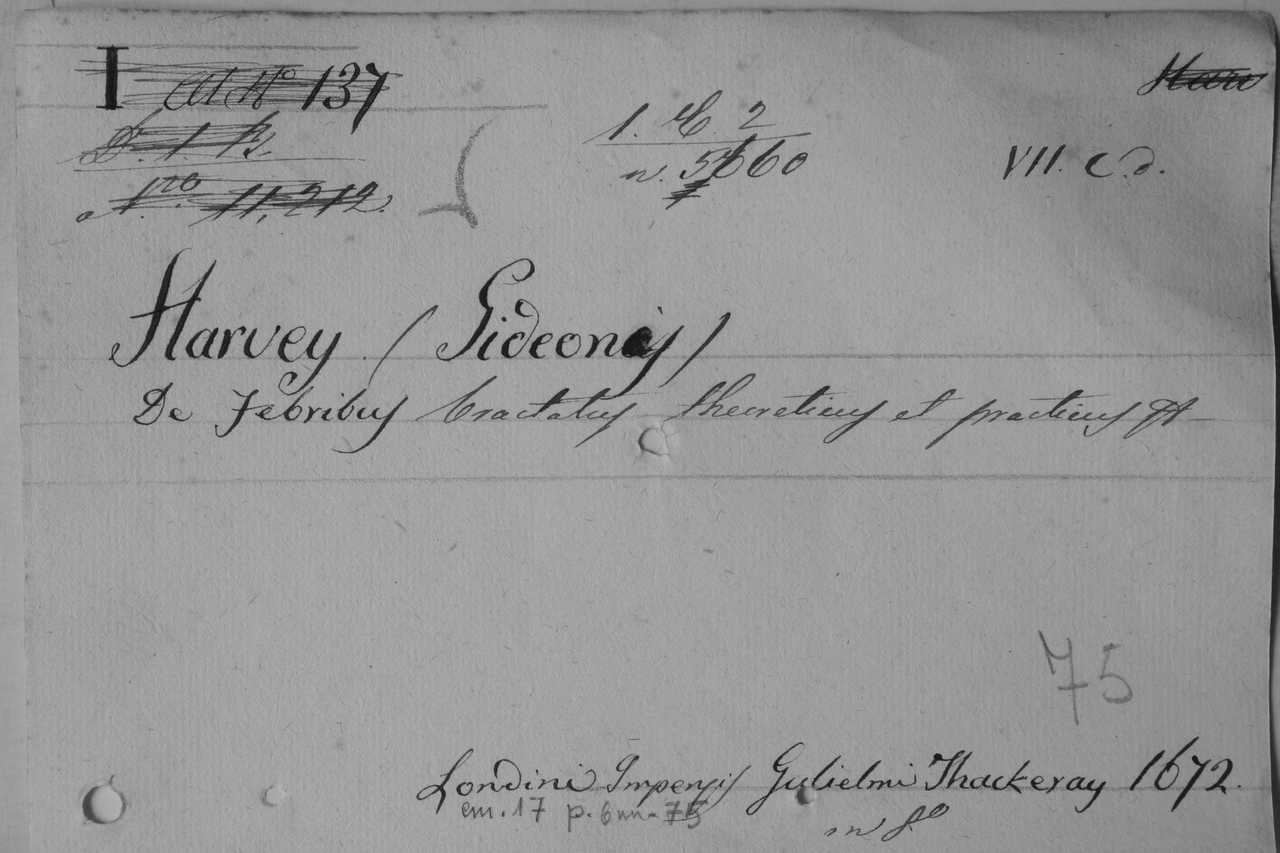 I 137
1. C. 2
VII. c. d.
n. 5660
11,212.
Harvey (Gideonis)
De Febribus tractatus theoreticus et practicus &
75
Londini Impensis Gulielmi Thackeray 1672.
cm. 17 p. 6 nn. 75
in 8.º